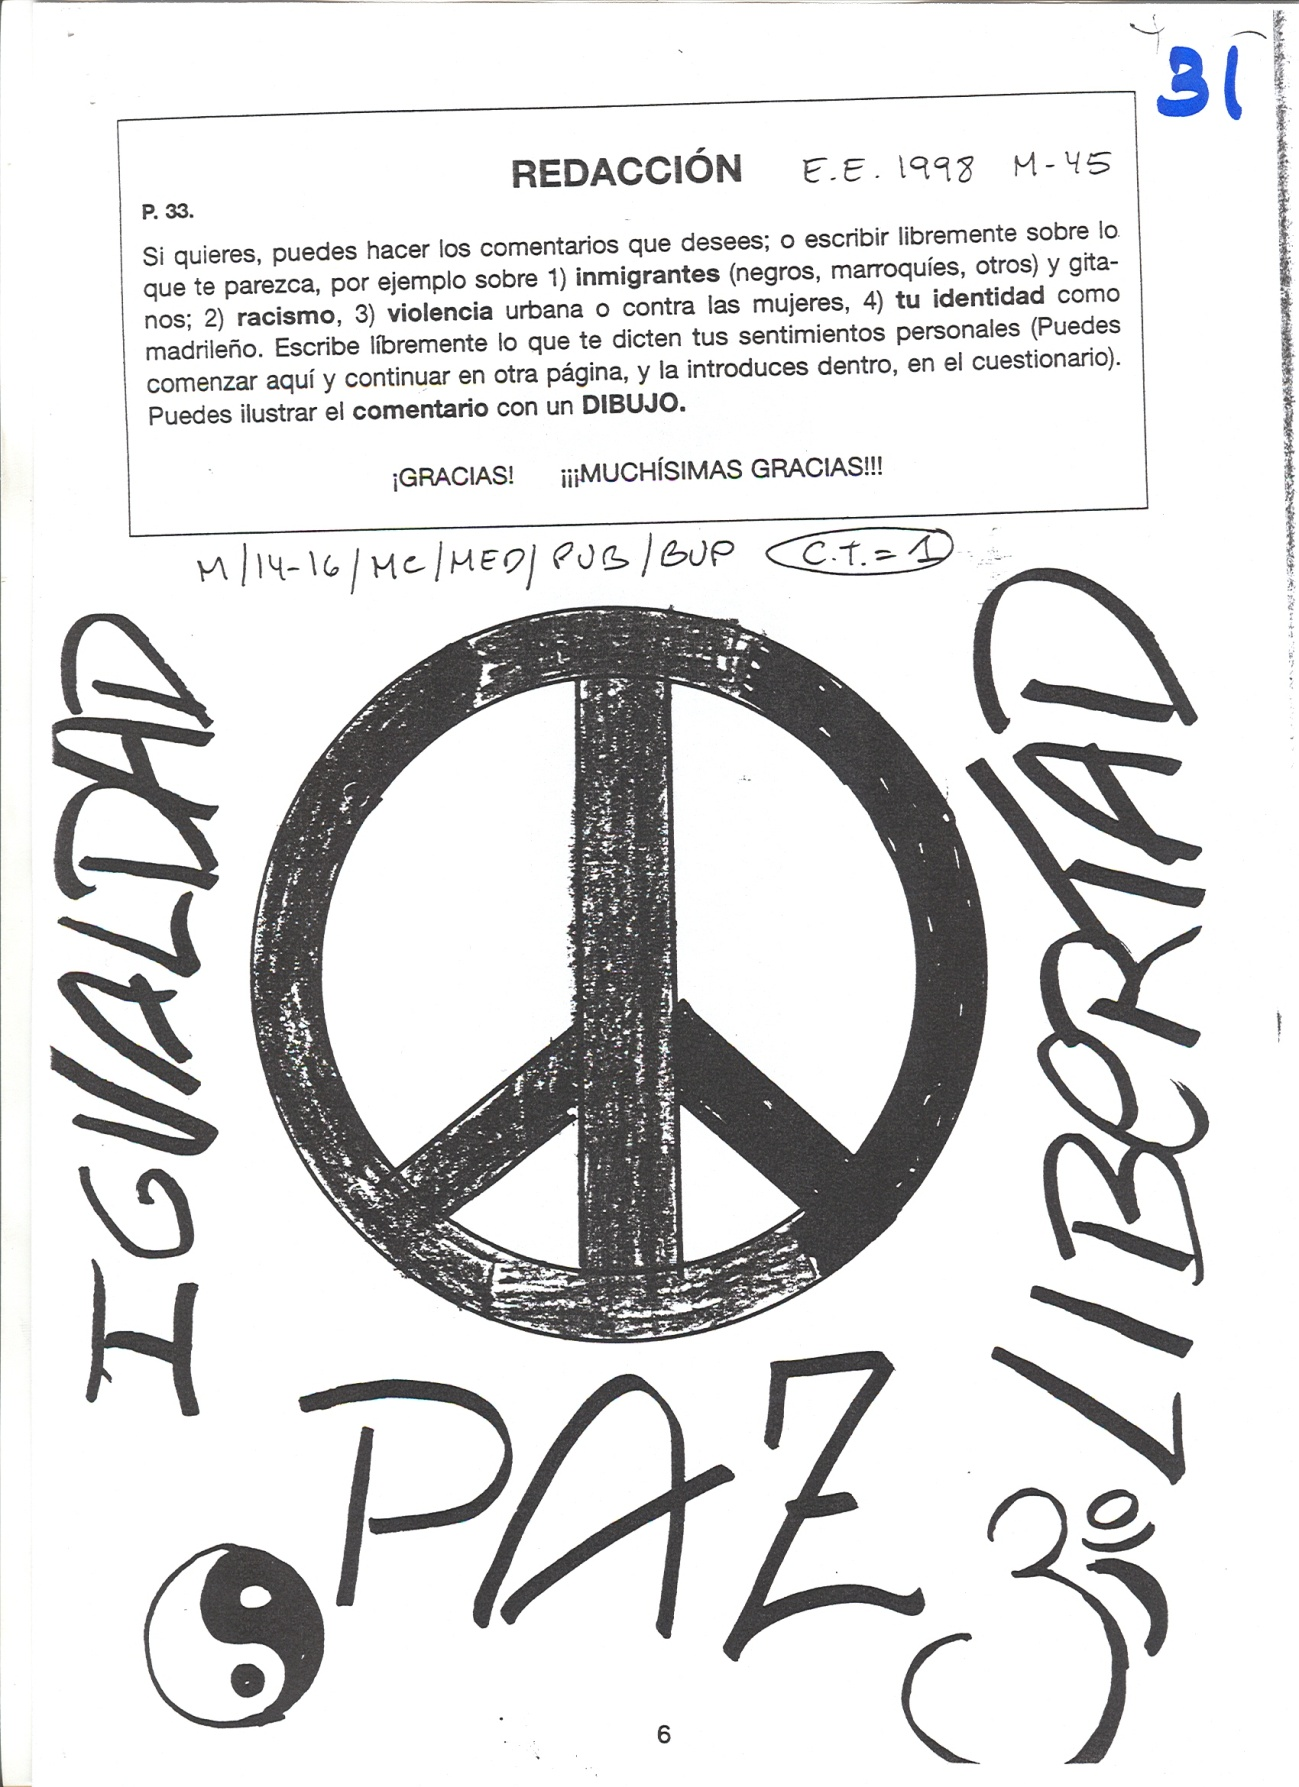 31
REDACCIÓN E.E. 1998 M-45
P. 33.
Si quieres, puedes hacer los comentarios que desees; o escribir libremente sobre lo
que te parezca, por ejemplo sobre 1) inmigrantes (negros, marroquíes, otros) y gita-
nos; 2) racismo, 3) violencia urbana o contra las mujeres, 4) tu identidad como
madrileño. Escribe líbremente lo que te dicten tus sentimientos personales (Puedes
comenzar aquí y continuar en otra página, y la introduces dentro, en el cuestionario).
Puedes ilustrar el comentario con un DIBUJO.
¡GRACIAS! ¡¡¡MUCHÍSIMAS GRACIAS!!!
M/14-16/MC/MED/PUB/BUP C.T.=1
IGUALDAD
LIBERTAD
PAZ
ॐ
6